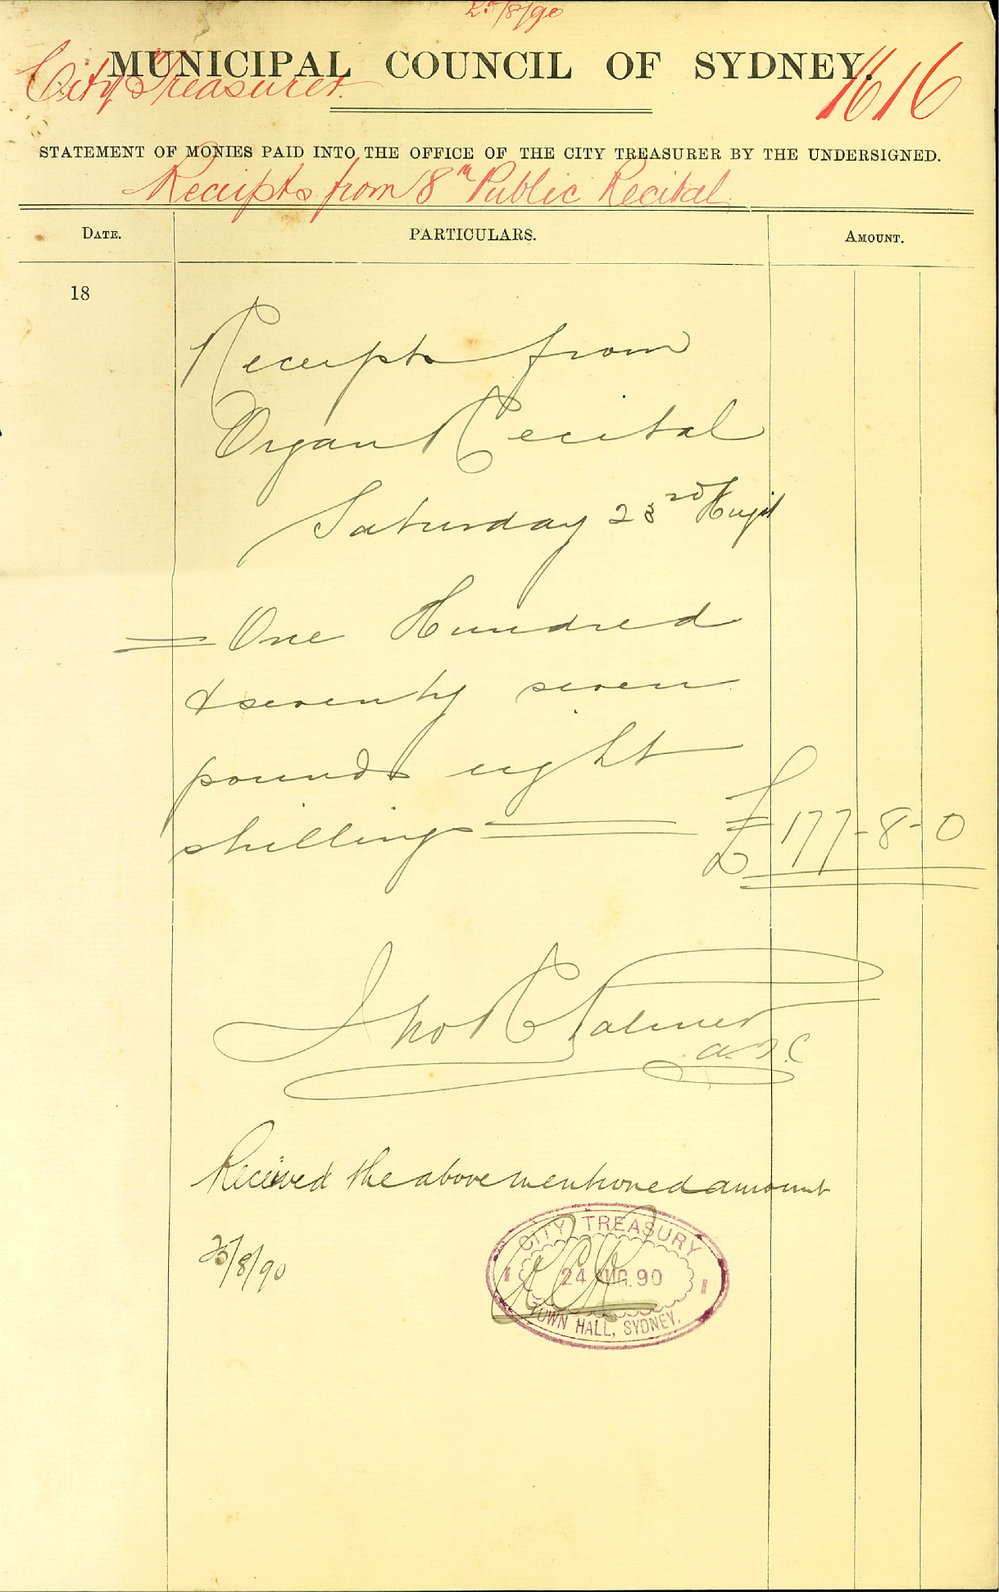 25/8/90
MUNICIPAL COUNCIL OF SYDNEY.
City Treasurer.
1616
STATEMENT OF MONIES PAID INTO THE OFFICE OF THE CITY TREASURER BY THE UNDERSIGNED.
Receipts from 8th Public Recital
DATE. PARTICULARS. AMOUNT.
18
Receipts from
Organ Recital
Saturday 23rd Augst
= One Hundred
& seventy seven
pounds eight
shillings £177-8-0
Jno R Palmer
Received the above mentioned amount
25/8/90
CITY TREASURY
24 AUG. 90
TOWN HALL, SYDNEY.